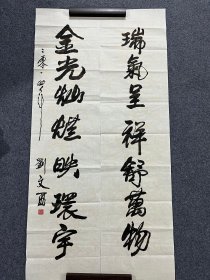 瑞氣呈祥舒萬物
金光灿爛映環宇
劉文西